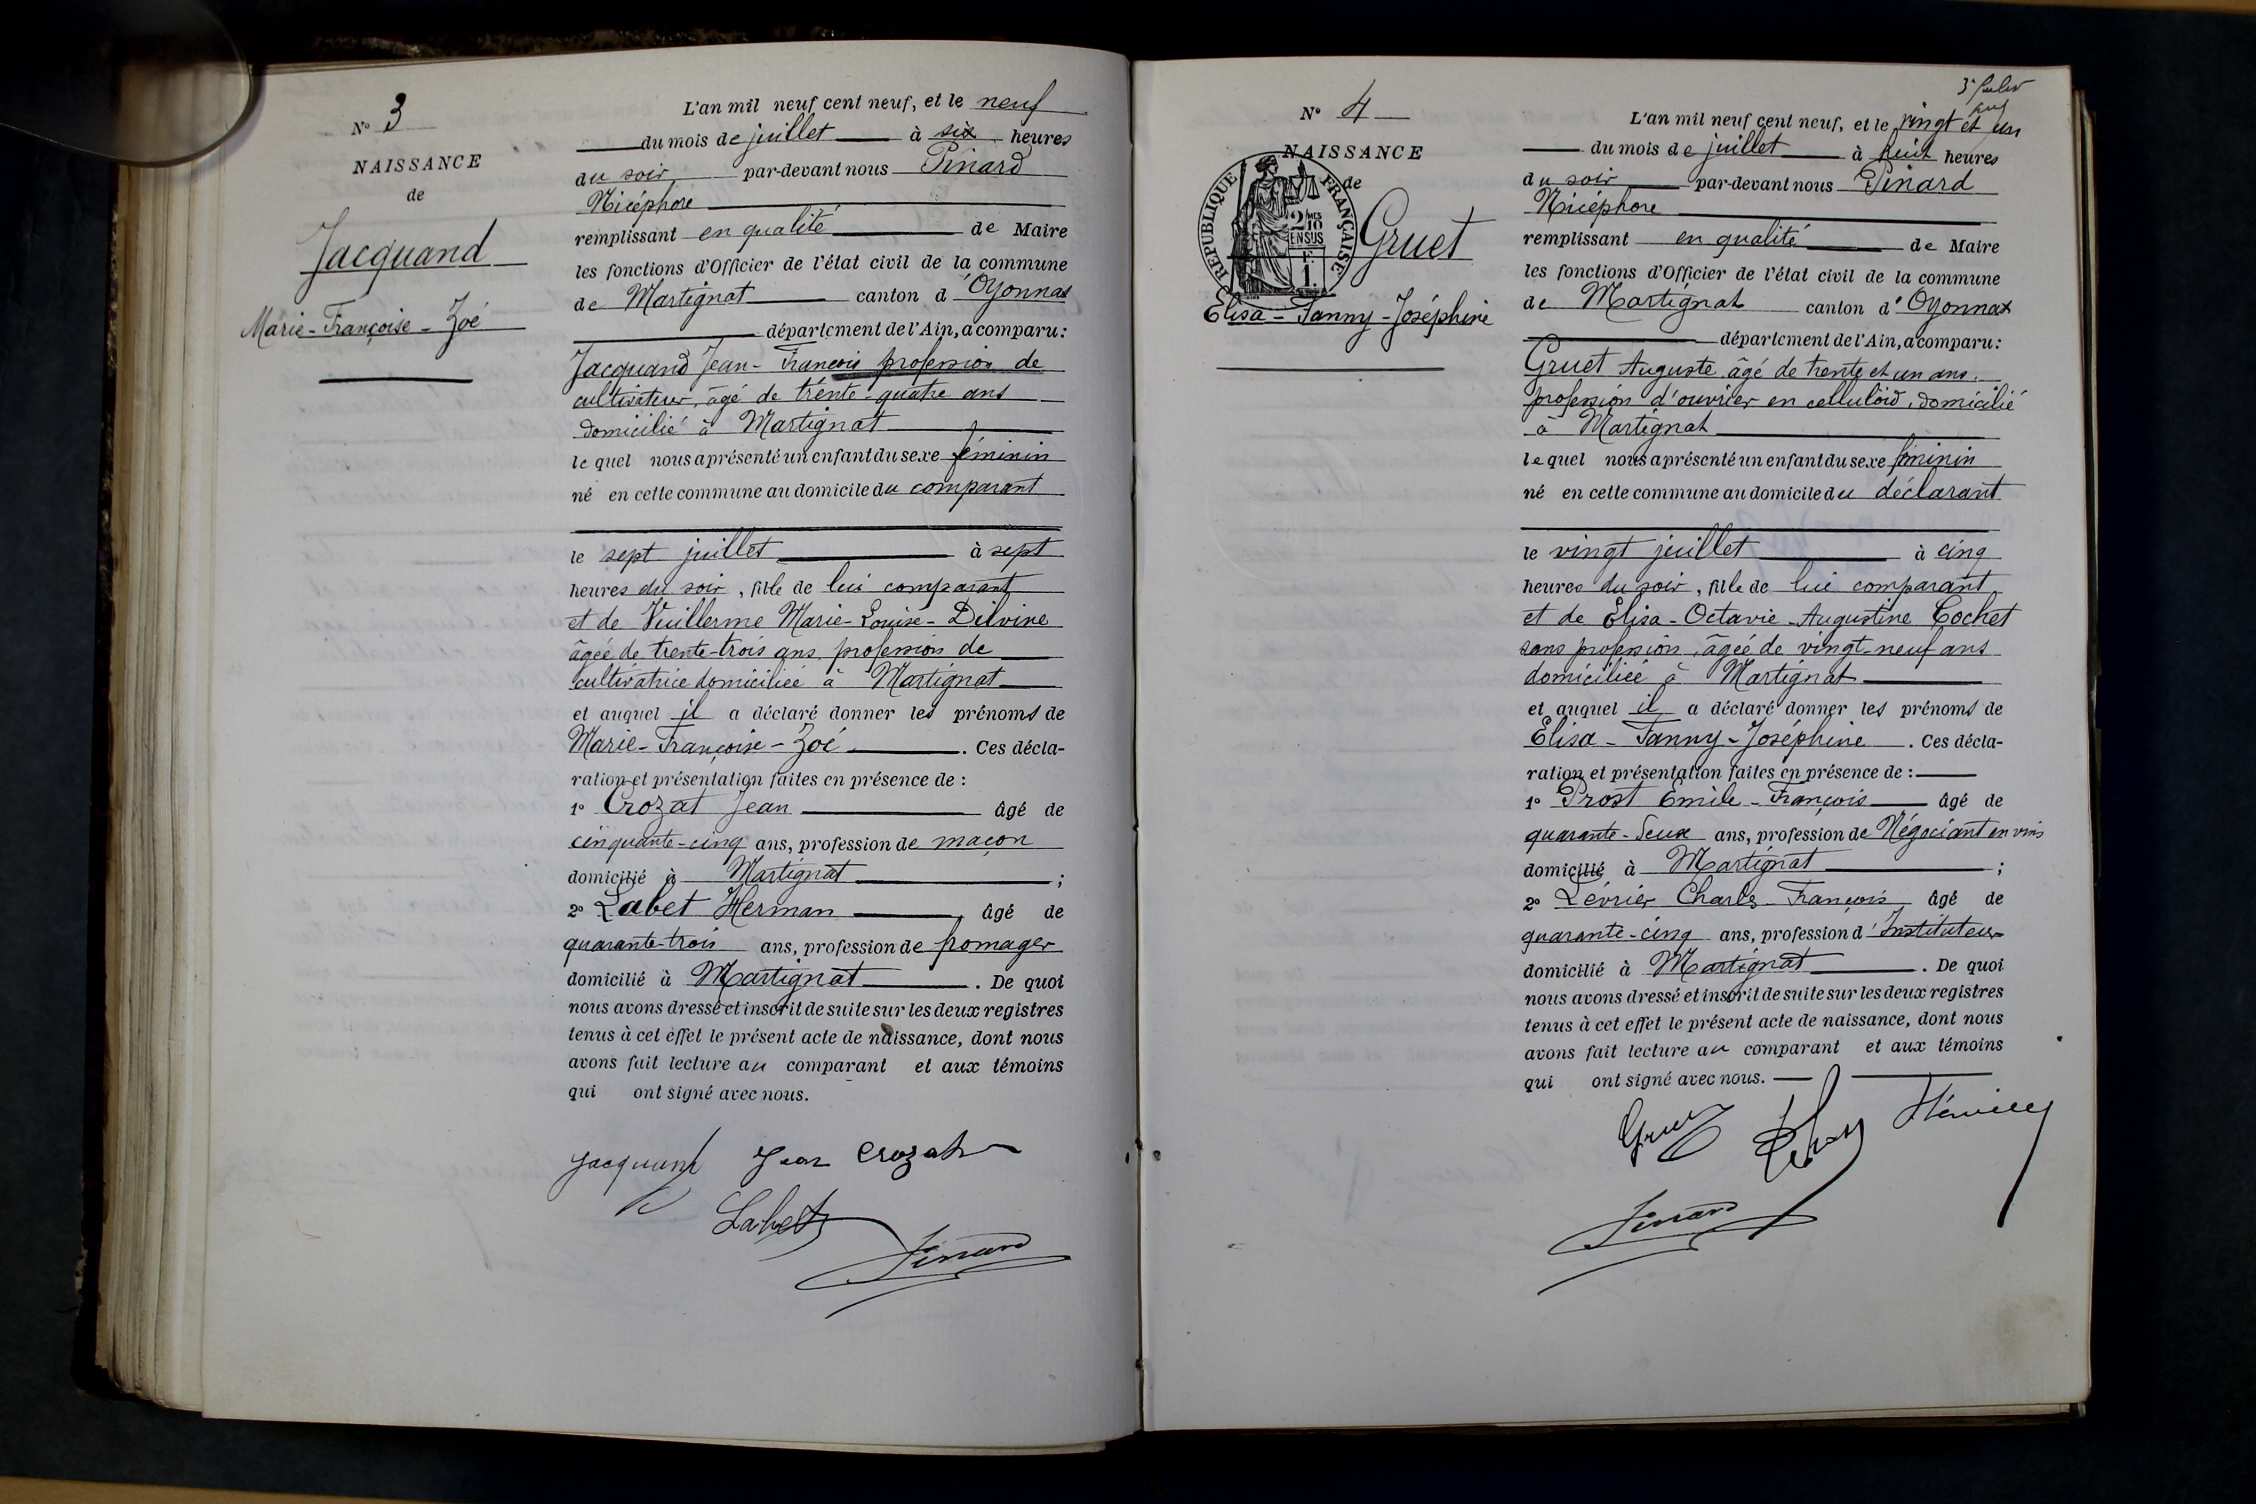 N° 3
NAISSANCE
de
Jacquand
Marie-Françoise-Zoé
L'an mil neuf cent neuf, et le neuf
du mois de juillet à six heures
du soir par-devant nous Pinard
Nicéphore
remplissant en qualité de Maire
les fonctions d'Officier de l'état civil de la commune
de Martignat canton d'Oyonnax
département de l'Ain, a comparu :
Jacquand Jean-François profession de
cultivateur, âgé de trente-quatre ans
domicilié à Martignat
lequel nous a présenté un enfant du sexe féminin
né en cette commune au domicile du comparant
le sept juillet à sept
heures du soir, fille de lui comparant
et de Vuillerme Marie-Louise-Delvine
âgée de trente-trois ans profession de
cultivatrice domiciliée à Martignat
et auquel il a déclaré donner les prénoms de
Marie-Françoise-Zoé. Ces décla-
ration et présentation faites en présence de :
1° Crozat Jean âgé de
cinquante-cinq ans, profession de maçon
domicilié à Martignat ;
2° Labet Herman, âgé de
quarante-trois ans, profession de fromager
domicilié à Martignat. De quoi
nous avons dressé et inscrit de suite sur les deux registres
tenus à cet effet le présent acte de naissance, dont nous
avons fait lecture au comparant et aux témoins
qui ont signé avec nous.
Jacquand Jean Crozat
Labet
Pinard
N° 4
NAISSANCE
de
RÉPUBLIQUE FRANÇAISE
2/10 MES
EN SUS
1 F.
Gruet
Elisa-Fanny-Joséphine
L'an mil neuf cent neuf, et le vingt et un
du mois de juillet à huit heures
du soir par-devant nous Pinard
Nicéphore
remplissant en qualité de Maire
les fonctions d'Officier de l'état civil de la commune
de Martignat canton d'Oyonnax
département de l'Ain, a comparu :
Gruet Auguste âgé de trente et un ans,
profession d'ouvrier en celluloïd, domicilié
à Martignat
lequel nous a présenté un enfant du sexe féminin
né en cette commune au domicile du déclarant
le vingt juillet à cinq
heures du soir, fille de lui comparant
et de Elisa-Octavie-Augustine Cochet
sans profession, âgée de vingt-neuf ans
domiciliée à Martignat
et auquel il a déclaré donner les prénoms de
Elisa-Fanny-Joséphine. Ces décla-
ration et présentation faites en présence de :
1° Prost Emile-François âgé de
quarante-deux ans, profession de Négociant en vins
domicilié à Martignat ;
2° Lévrier Charles-François âgé de
quarante-cinq ans, profession d'Instituteur
domicilié à Martignat. De quoi
nous avons dressé et inscrit de suite sur les deux registres
tenus à cet effet le présent acte de naissance, dont nous
avons fait lecture au comparant et aux témoins
qui ont signé avec nous.
Gruet
Pinard